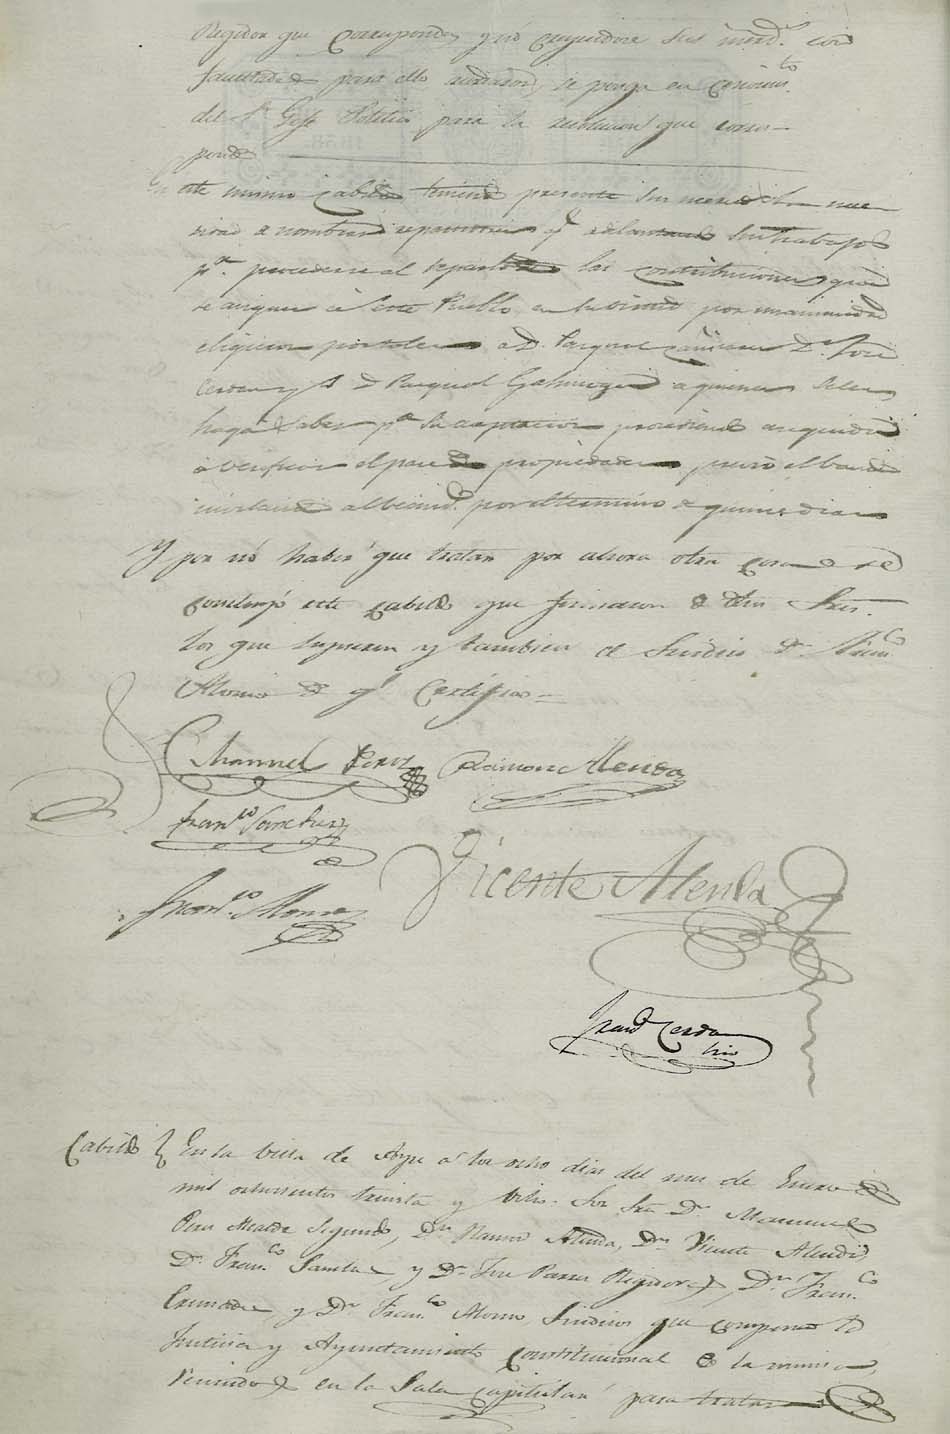 Regidor que corresponda, y nó creyendose sus merd.s con
facultades para ello acordaron, se ponga en conocim.to
del Sr. Gefe Politico para la resolucion que corres-
ponde
En este mismo cabildo teniendo presente sus mercedes la nece-
sidad de nombrar repartidores q.e adelantando sus trabajos
p.a procederse al reparto de las contribuciones que
se carguen á este Pueblo, en su virtud por unanimidad
eligieron por tales a D. Pasqual D.n José
Cerdan y D. Pasqual a quienes se les
haga saber p.a su aceptacion procediendo en seguida
á verificar el de propiedades previo el bando
al vecind.o por el termino de quince dias
Y por nó haber que tratar por ahora otra cosa se
concluyó este cabildo que firmaron de dhos Sres.
los que supieron y tambien el Sindico D.n Fran.co
Alonso de q.e Certifico =
Manuel Perez Ramon Alenda
Fran.co Sanchez
Vicente Alenda
Fran.co Alonso
Fran.co Cerdan
Srio
Cabildo En la Villa de Aspe á los ocho dias del mes de Enero de
mil ochocientos treinta y ocho. Los Sres D.n Manuel
Perez Alcalde Segundo, D.n Ramon Alenda, D.n Vicente Alenda,
D.n Fran.co Sanchez, y D.n José Regidores, D.n Fran.co
y D.n Fran.co Alonso, Sindicos que componen la
Justicia y Ayuntamiento Constitucional de la misma,
Reunidos en la Sala capitular para tratar